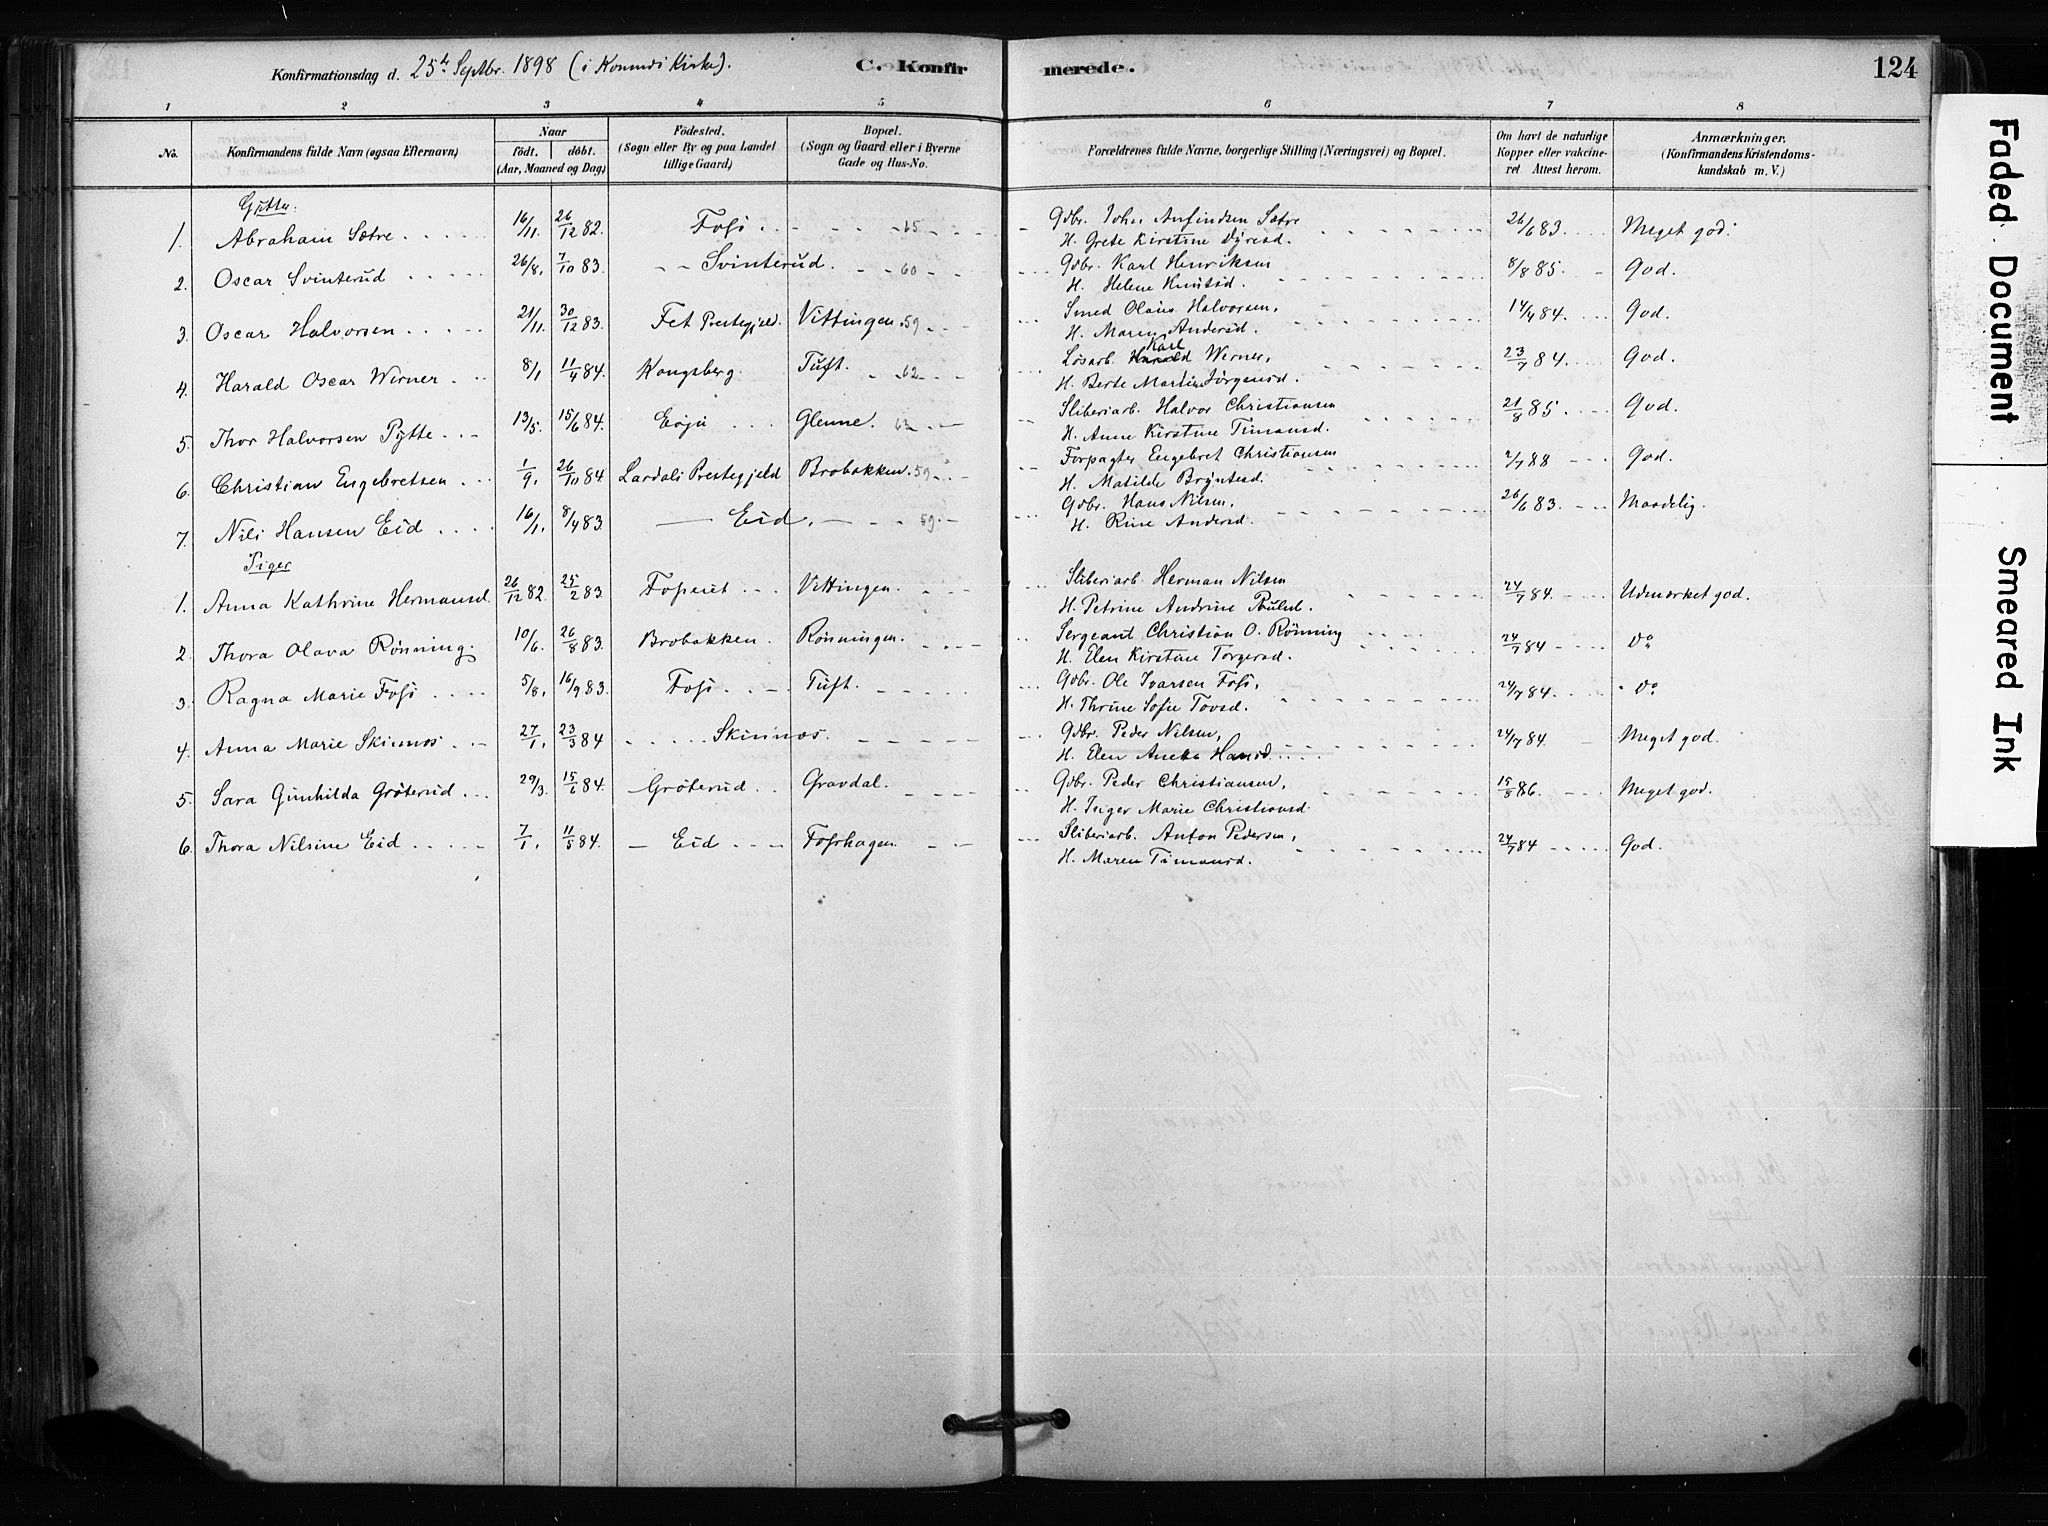 Konfirmationsdag d. 25de Septbr. 1898 (i Komnds Kirke).
C. Konfirmerede.
124
1 2 3 4 5 6 7 8
No. Konfirmandens fulde Navn (ogsaa Efternavn) Naar födt. döbt. (Aar, Maaned og Dag) Födested. (Sogn eller By og paa Landet tillige Gaard) Bopæl. (Sogn og Gaard eller i Byerne Gade og Hus-No. Forældrenes fulde Navne, borgerlige Stilling (Næringsvei) og Bopæl. Om havt de naturlige Kopper eller vakcineret Attest herom. Anmærkninger. (Konfirmandens Kristendomskundskab m. V.)
Gutter:
1. Abraham Sætre 16/11. 26/12 82. Foss 65 Gdbr. Johs Anfindsen Sætre 26/6 83 Meget god.
H. Grete Kirstine Dyresd.
2. Oscar Svinterud 26/8. 7/10 83. Svinterud 60 Gdbr. Karl Henriksen 8/8 85. God.
H. Helene Knutsd.
3. Oscar Halvorsen 21/11. 30/12 83. Fet Prestegjeld. Vittingen 59 Smed Olaus Halvorsen, 14/4 84. God.
H. Maren Andersd.
4. Harald Oscar Werner 8/1 11/4 84. Kongsberg. Tuft. 62 Løsarb. Harald Karl Werner, 23/7 84. God.
H. Berte Martine Jörgensd.
5. Thor Halvorsen Pytte 13/5. 15/6 84. Glenne. 62 Sliberiarb. Halvor Christiansen 21/8 85. God.
H. Anne Kirstine Timansd.
6. Christian Engebretsen 1/9. 26/10 84 Lardals Prestegjeld Brobakken. 59 Forpagter Engebret Christiansen 2/7 88 God.
H. Matilde Bryntesd.
7. Nils Hansen Eid 16/1. 8/4 83. Eid. 59 Gdbr. Hans Nilsen, 26/6 83. Maadelig.
H. Rine Andersd.
Piger
1. Anna Kathrine Hermansd. 26/12 82. 25/2 83. Foseiet Vittingen. Sliberiarb. Herman Nilsen 24/7 84. Udmærket god.
H. Petrine Andrine Paulsd.
2. Thora Olava Rønning. 10/6. 26/8 83. Brobakken. Rønningen. Sergeant Christian O. Rønning 24/7 84 Do
H. Elen Kirstine Torgersd.
3. Ragna Marie Foss 5/8. 16/9 83. Foss Tuft. Gdbr. Ole Ivarsen Foss, 24/7 84. Do
H. Thrine Sofie Tovsd.
4. Anna Marie Skinnes 27/1. 23/3 84 Skinnæs Gdbr. Peder Nilsen, 24/7 84. Meget god.
H. Elen Aneka Hansd.
5. Sara Gunhilda Gröterud 29/3. 15/6 84. Gröterud Gravdal. Gdbr. Peder Christiansen, 15/8 86. Meget god.
H. Inger Marie Christiansd.
6. Thora Nilsine Eid 7/1. 11/5 84. Eid Foshagen. Sliberiarb. Anton Pedersen, 24/7 84 God.
H. Maren Timansd.
Faded Document
Smeared Ink